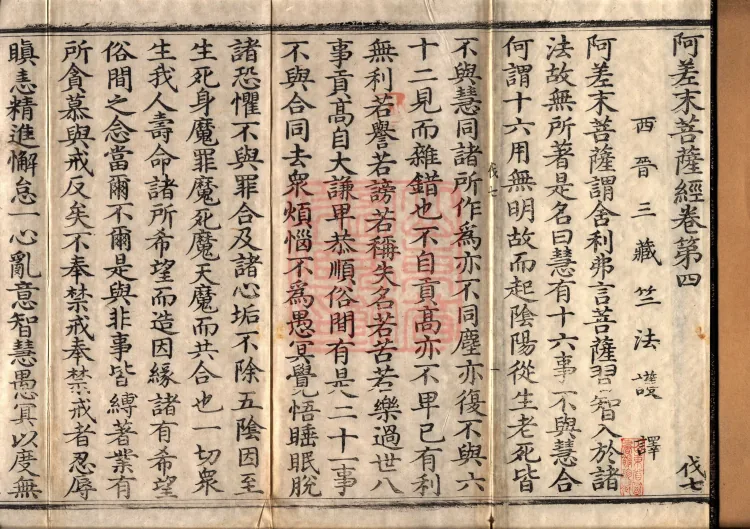 阿差末菩薩經卷第四
伐七
西晉三藏竺法護譯
阿差末菩薩謂舍利弗言菩薩習智入於諸
法故無所著是名曰慧有十六事不與慧合
何謂十六用無明故而起陰陽從生老死皆
不與慧同諸所作為亦不同塵亦復不與六
伐七
十二見而雜錯也不自貢高亦不卑已有利
無利若譽若謗若稱失名若苦若樂過世八
事貢高自大謙卑恭順俗間有是二十一事
不與合同去衆煩惱不為愚冥覺悟睡眠脫
諸恐懼不與罪合及諸心垢不除五陰因至
生死身魔罪魔死魔天魔而共合也一切衆
生我人壽命諸所希望而造因緣諸有希望
俗間之念當爾不爾是與非事皆縛著業有
所貪慕與戒反矣不奉禁戒奉禁戒者忍辱
瞋恚精進懈怠一心亂意智慧愚冥以度無